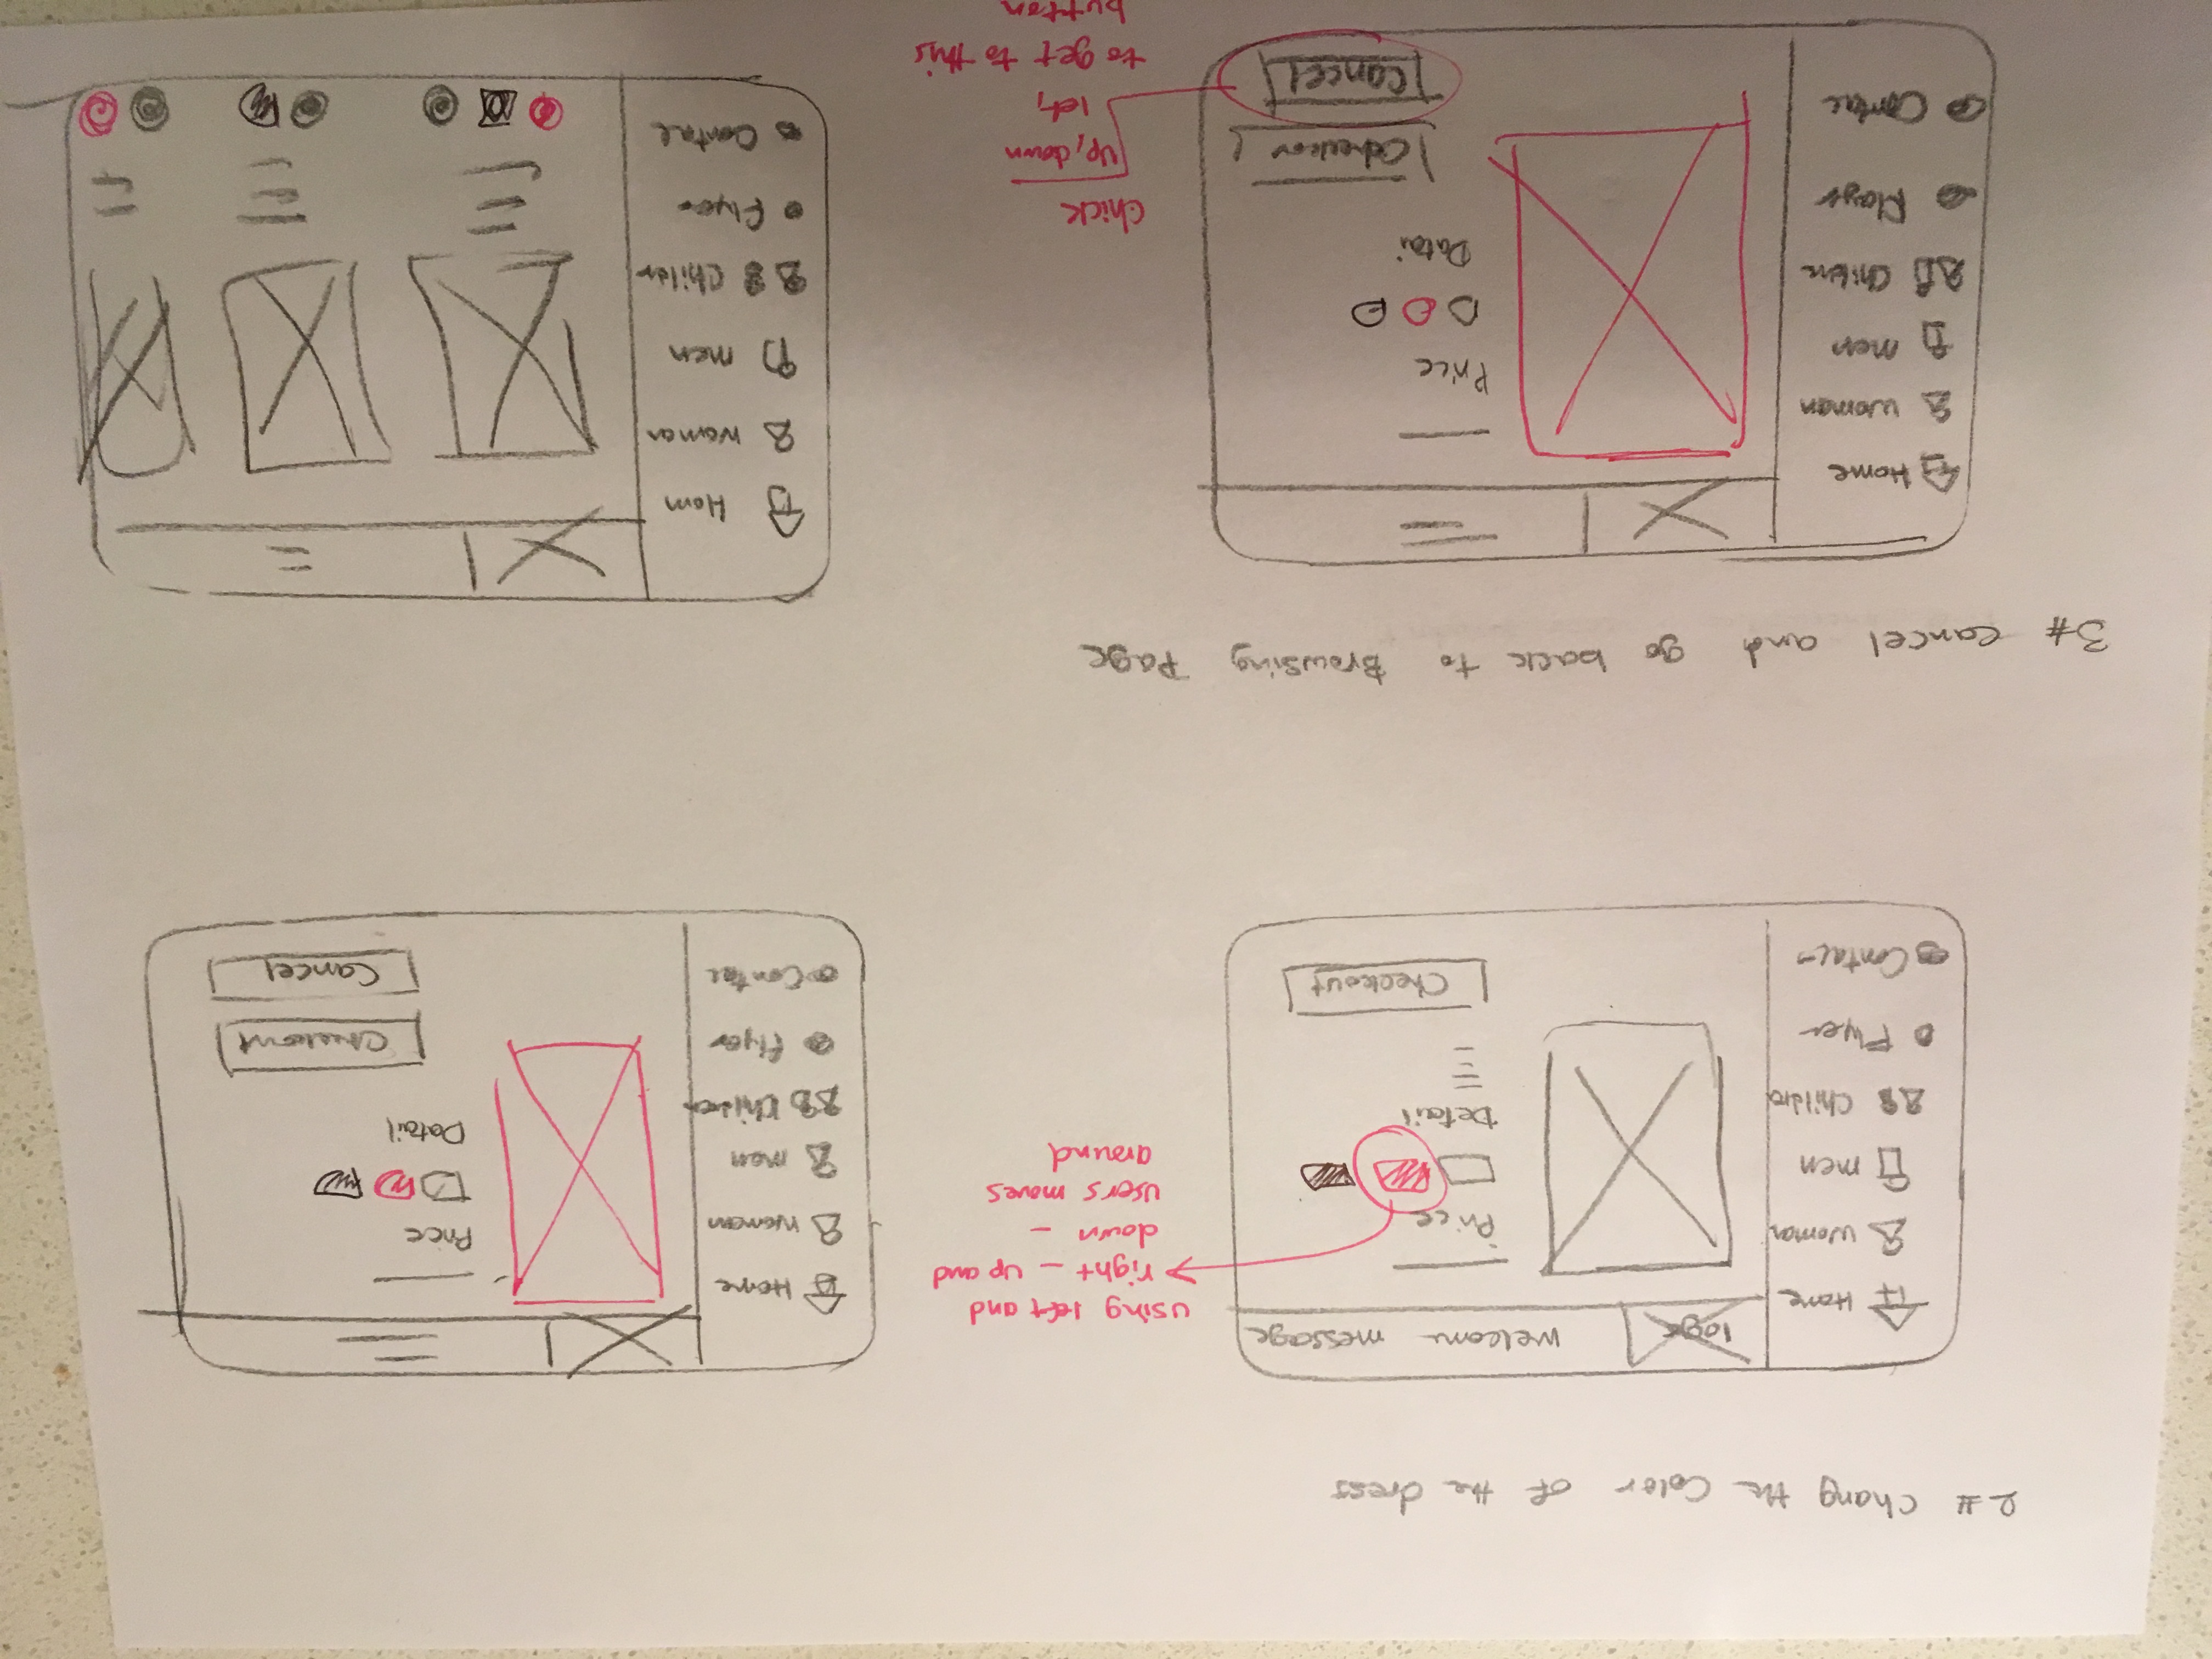 2# Chang the Color of the dress
logo
welcome message
Home
Woman
men
Childre
Flyer
Contact
Price
Detail
Checkout
using left and
right - up and
down -
users moves
around
Home
Women
men
Children
flyer
Contac
Price
Datail
Checkout
Cancel
3# cancel and go back to Browsing Page
Home
Woman
Men
Childre
Flayr
Contac
Price
Datai
Checkou
Cancel
Chick
up, down
let,
to get to this
button
Hom
Woman
men
Childr
flyer
Contac